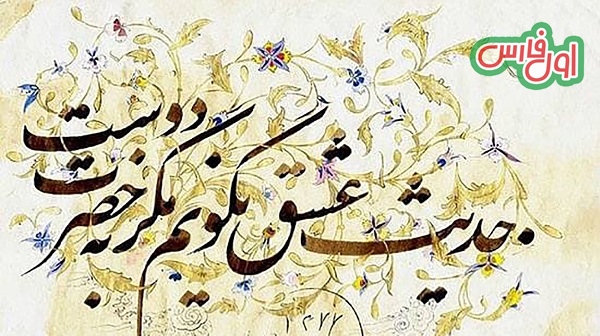 اول فارس
حدیث عشق نگویم مگر به حضرت دوست
۱۳۷۷